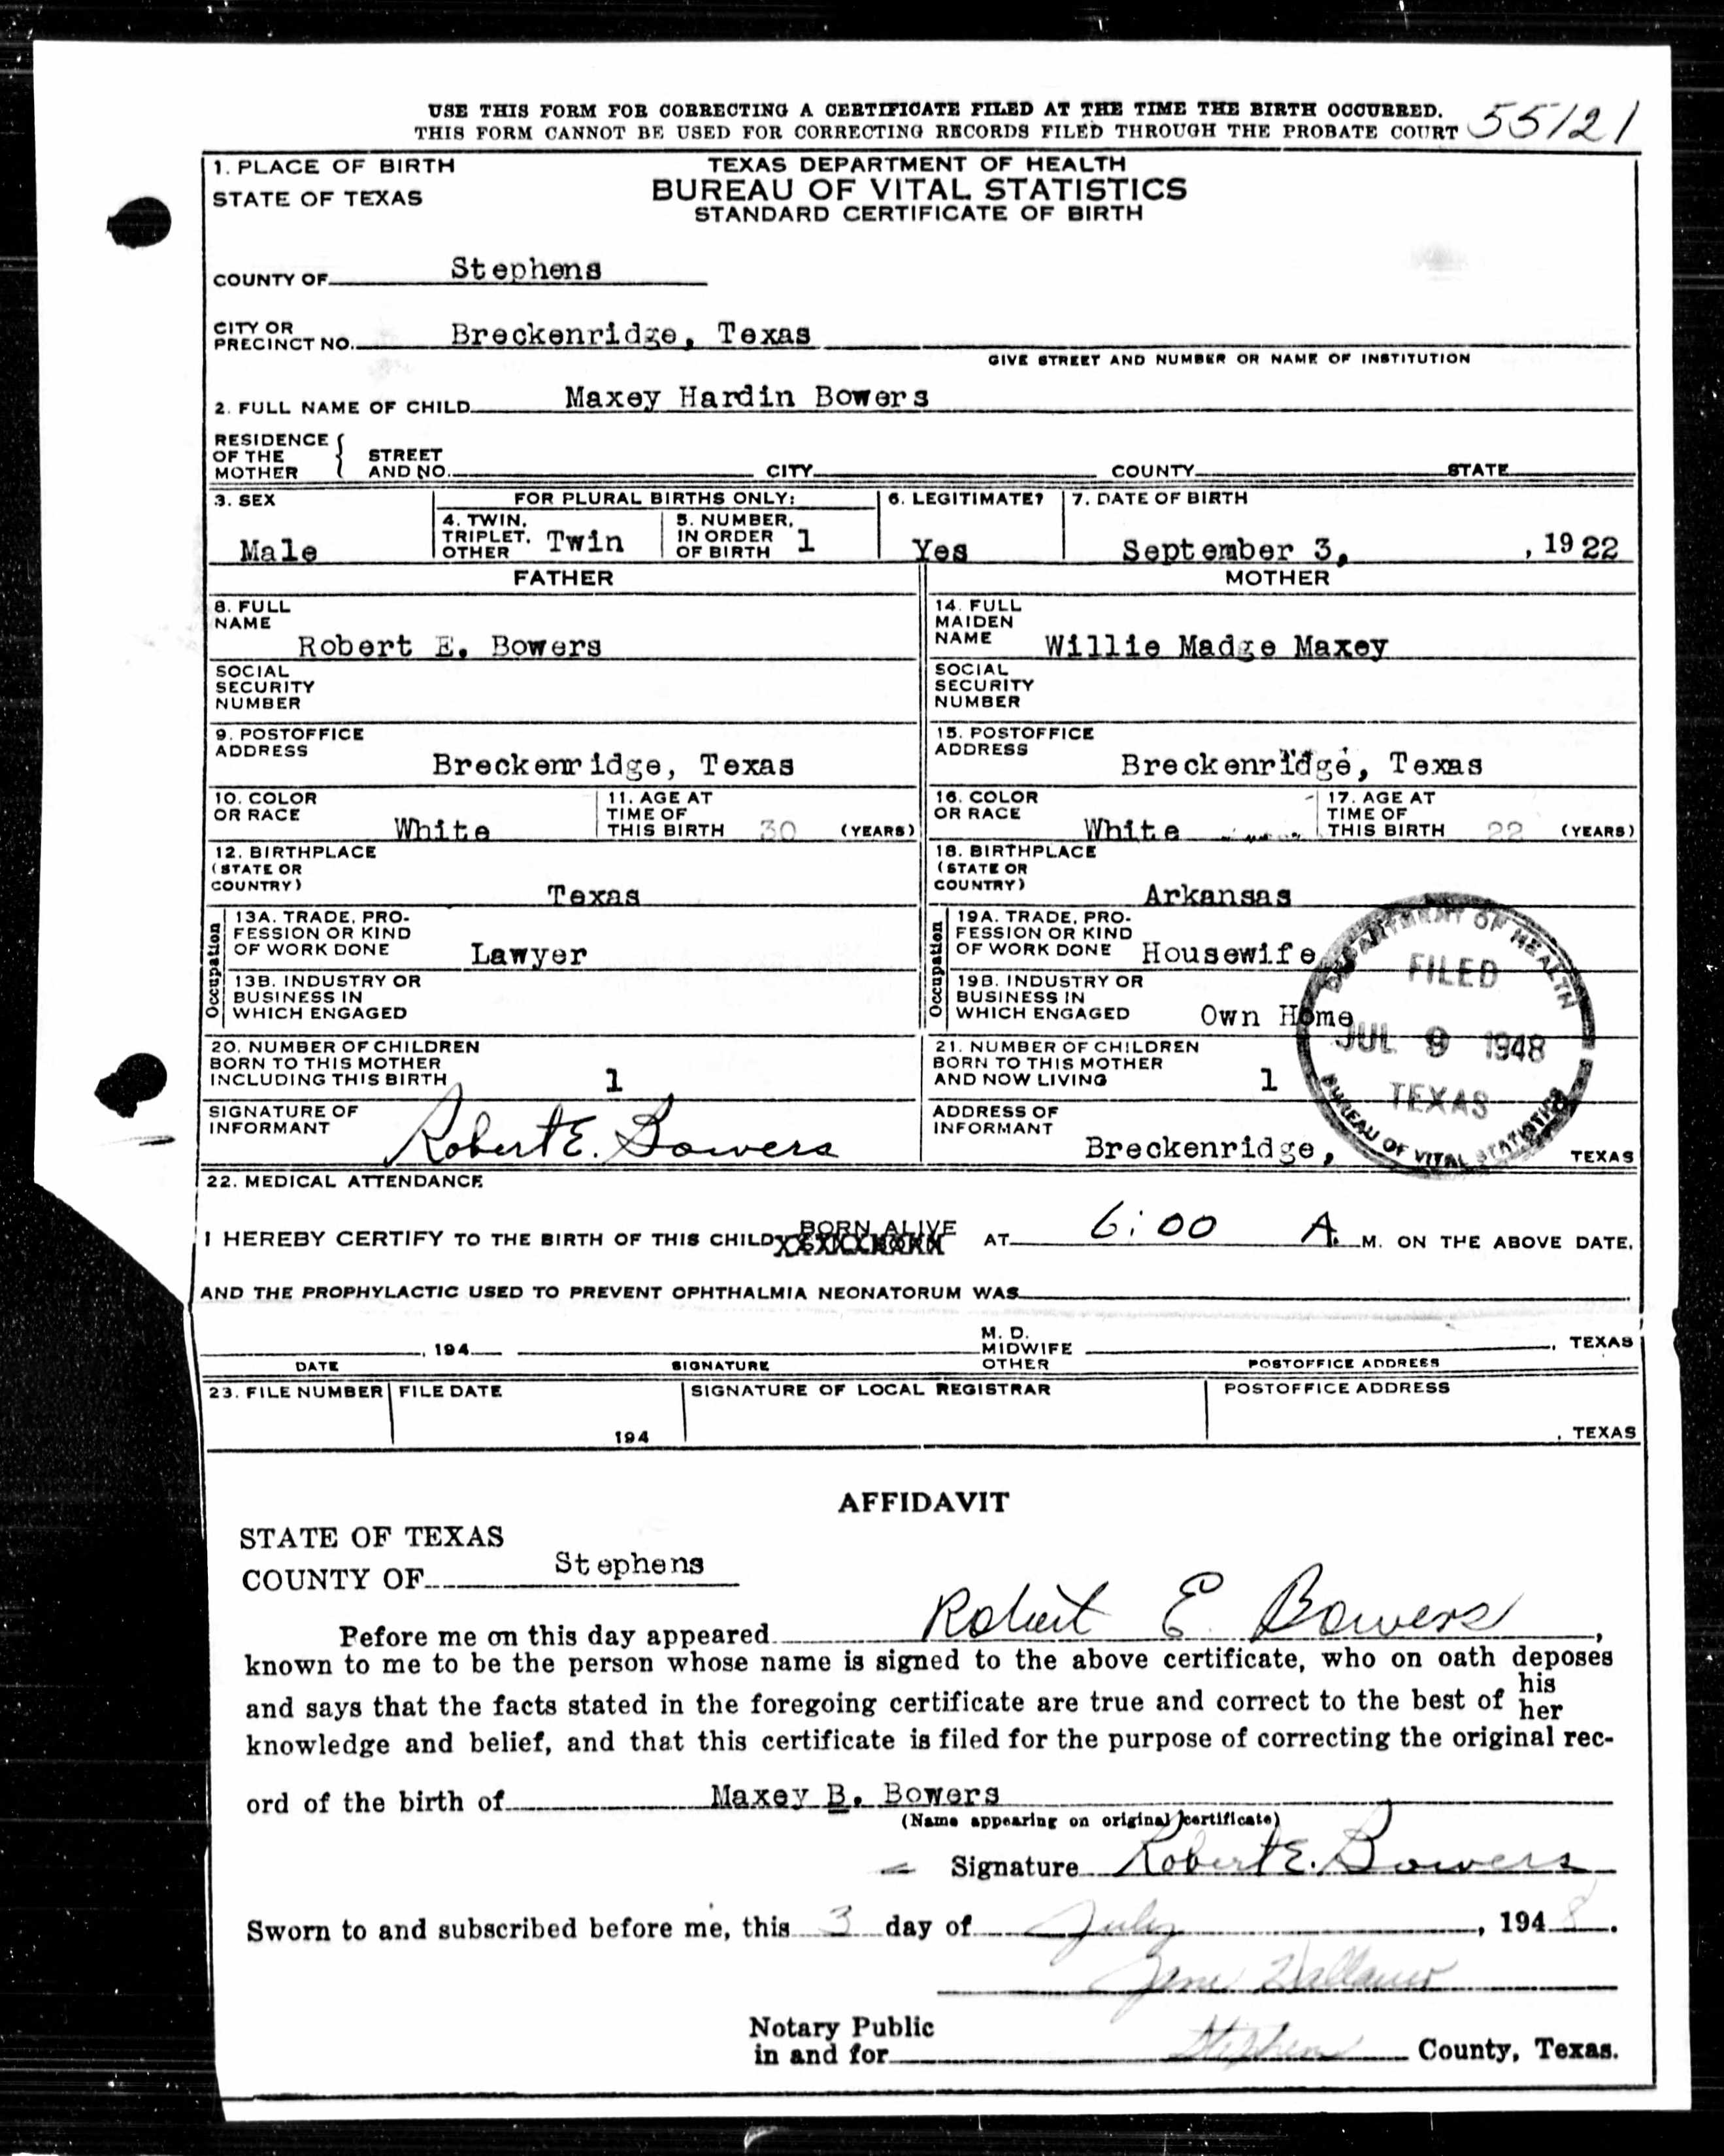 USE THIS FORM FOR CORRECTING A CERTIFICATE FILED AT THE TIME THE BIRTH OCCURRED.
THIS FORM CANNOT BE USED FOR CORRECTING RECORDS FILED THROUGH THE PROBATE COURT 55121
1. PLACE OF BIRTH
STATE OF TEXAS
TEXAS DEPARTMENT OF HEALTH
BUREAU OF VITAL STATISTICS
STANDARD CERTIFICATE OF BIRTH
COUNTY OF Stephens
CITY OR
PRECINCT NO. Breckenridge, Texas
GIVE STREET AND NUMBER OR NAME OF INSTITUTION
2. FULL NAME OF CHILD Maxey Hardin Bowers
RESIDENCE
OF THE
MOTHER
STREET
AND NO. CITY COUNTY STATE
3. SEX
Male
FOR PLURAL BIRTHS ONLY:
4. TWIN,
TRIPLET,
OTHER Twin
5. NUMBER,
IN ORDER
OF BIRTH 1
6. LEGITIMATE?
Yes
7. DATE OF BIRTH
September 3, , 1922
FATHER
8. FULL
NAME
Robert E. Bowers
SOCIAL
SECURITY
NUMBER
9. POSTOFFICE
ADDRESS
Breckenridge, Texas
10. COLOR
OR RACE
White
11. AGE AT
TIME OF
THIS BIRTH 30 (YEARS)
12. BIRTHPLACE
(STATE OR
COUNTRY)
Texas
Occupation
13A. TRADE, PRO-
FESSION OR KIND
OF WORK DONE Lawyer
13B. INDUSTRY OR
BUSINESS IN
WHICH ENGAGED
MOTHER
14. FULL
MAIDEN
NAME Willie Madge Maxey
SOCIAL
SECURITY
NUMBER
15. POSTOFFICE
ADDRESS
Breckenridge, Texas
16. COLOR
OR RACE
White
17. AGE AT
TIME OF
THIS BIRTH 22 (YEARS)
18. BIRTHPLACE
(STATE OR
COUNTRY)
Arkansas
Occupation
19A. TRADE, PRO-
FESSION OR KIND
OF WORK DONE Housewife
19B. INDUSTRY OR
BUSINESS IN
WHICH ENGAGED Own Home
20. NUMBER OF CHILDREN
BORN TO THIS MOTHER
INCLUDING THIS BIRTH 1
21. NUMBER OF CHILDREN
BORN TO THIS MOTHER
AND NOW LIVING 1
DEPARTMENT OF HEALTH
FILED
JUL 9 1948
TEXAS
BUREAU OF VITAL STATISTICS
SIGNATURE OF
INFORMANT Robert E. Bowers
ADDRESS OF
INFORMANT
Breckenridge, TEXAS
22. MEDICAL ATTENDANCE
I HEREBY CERTIFY TO THE BIRTH OF THIS CHILD BORN ALIVE AT 6:00 A. M. ON THE ABOVE DATE,
AND THE PROPHYLACTIC USED TO PREVENT OPHTHALMIA NEONATORUM WAS
, 194
DATE
SIGNATURE
M. D.
MIDWIFE
OTHER
, TEXAS
POSTOFFICE ADDRESS
23. FILE NUMBER FILE DATE SIGNATURE OF LOCAL REGISTRAR POSTOFFICE ADDRESS
194 , TEXAS
AFFIDAVIT
STATE OF TEXAS
COUNTY OF Stephens
Before me on this day appeared Robert E. Bowers,
known to me to be the person whose name is signed to the above certificate, who on oath deposes
and says that the facts stated in the foregoing certificate are true and correct to the best of his her
knowledge and belief, and that this certificate is filed for the purpose of correcting the original rec-
ord of the birth of Maxey B. Bowers
(Name appearing on original certificate)
Signature Robert E. Bowers
Sworn to and subscribed before me, this 3 day of July, 1948.
Notary Public
in and for Stephens County, Texas.